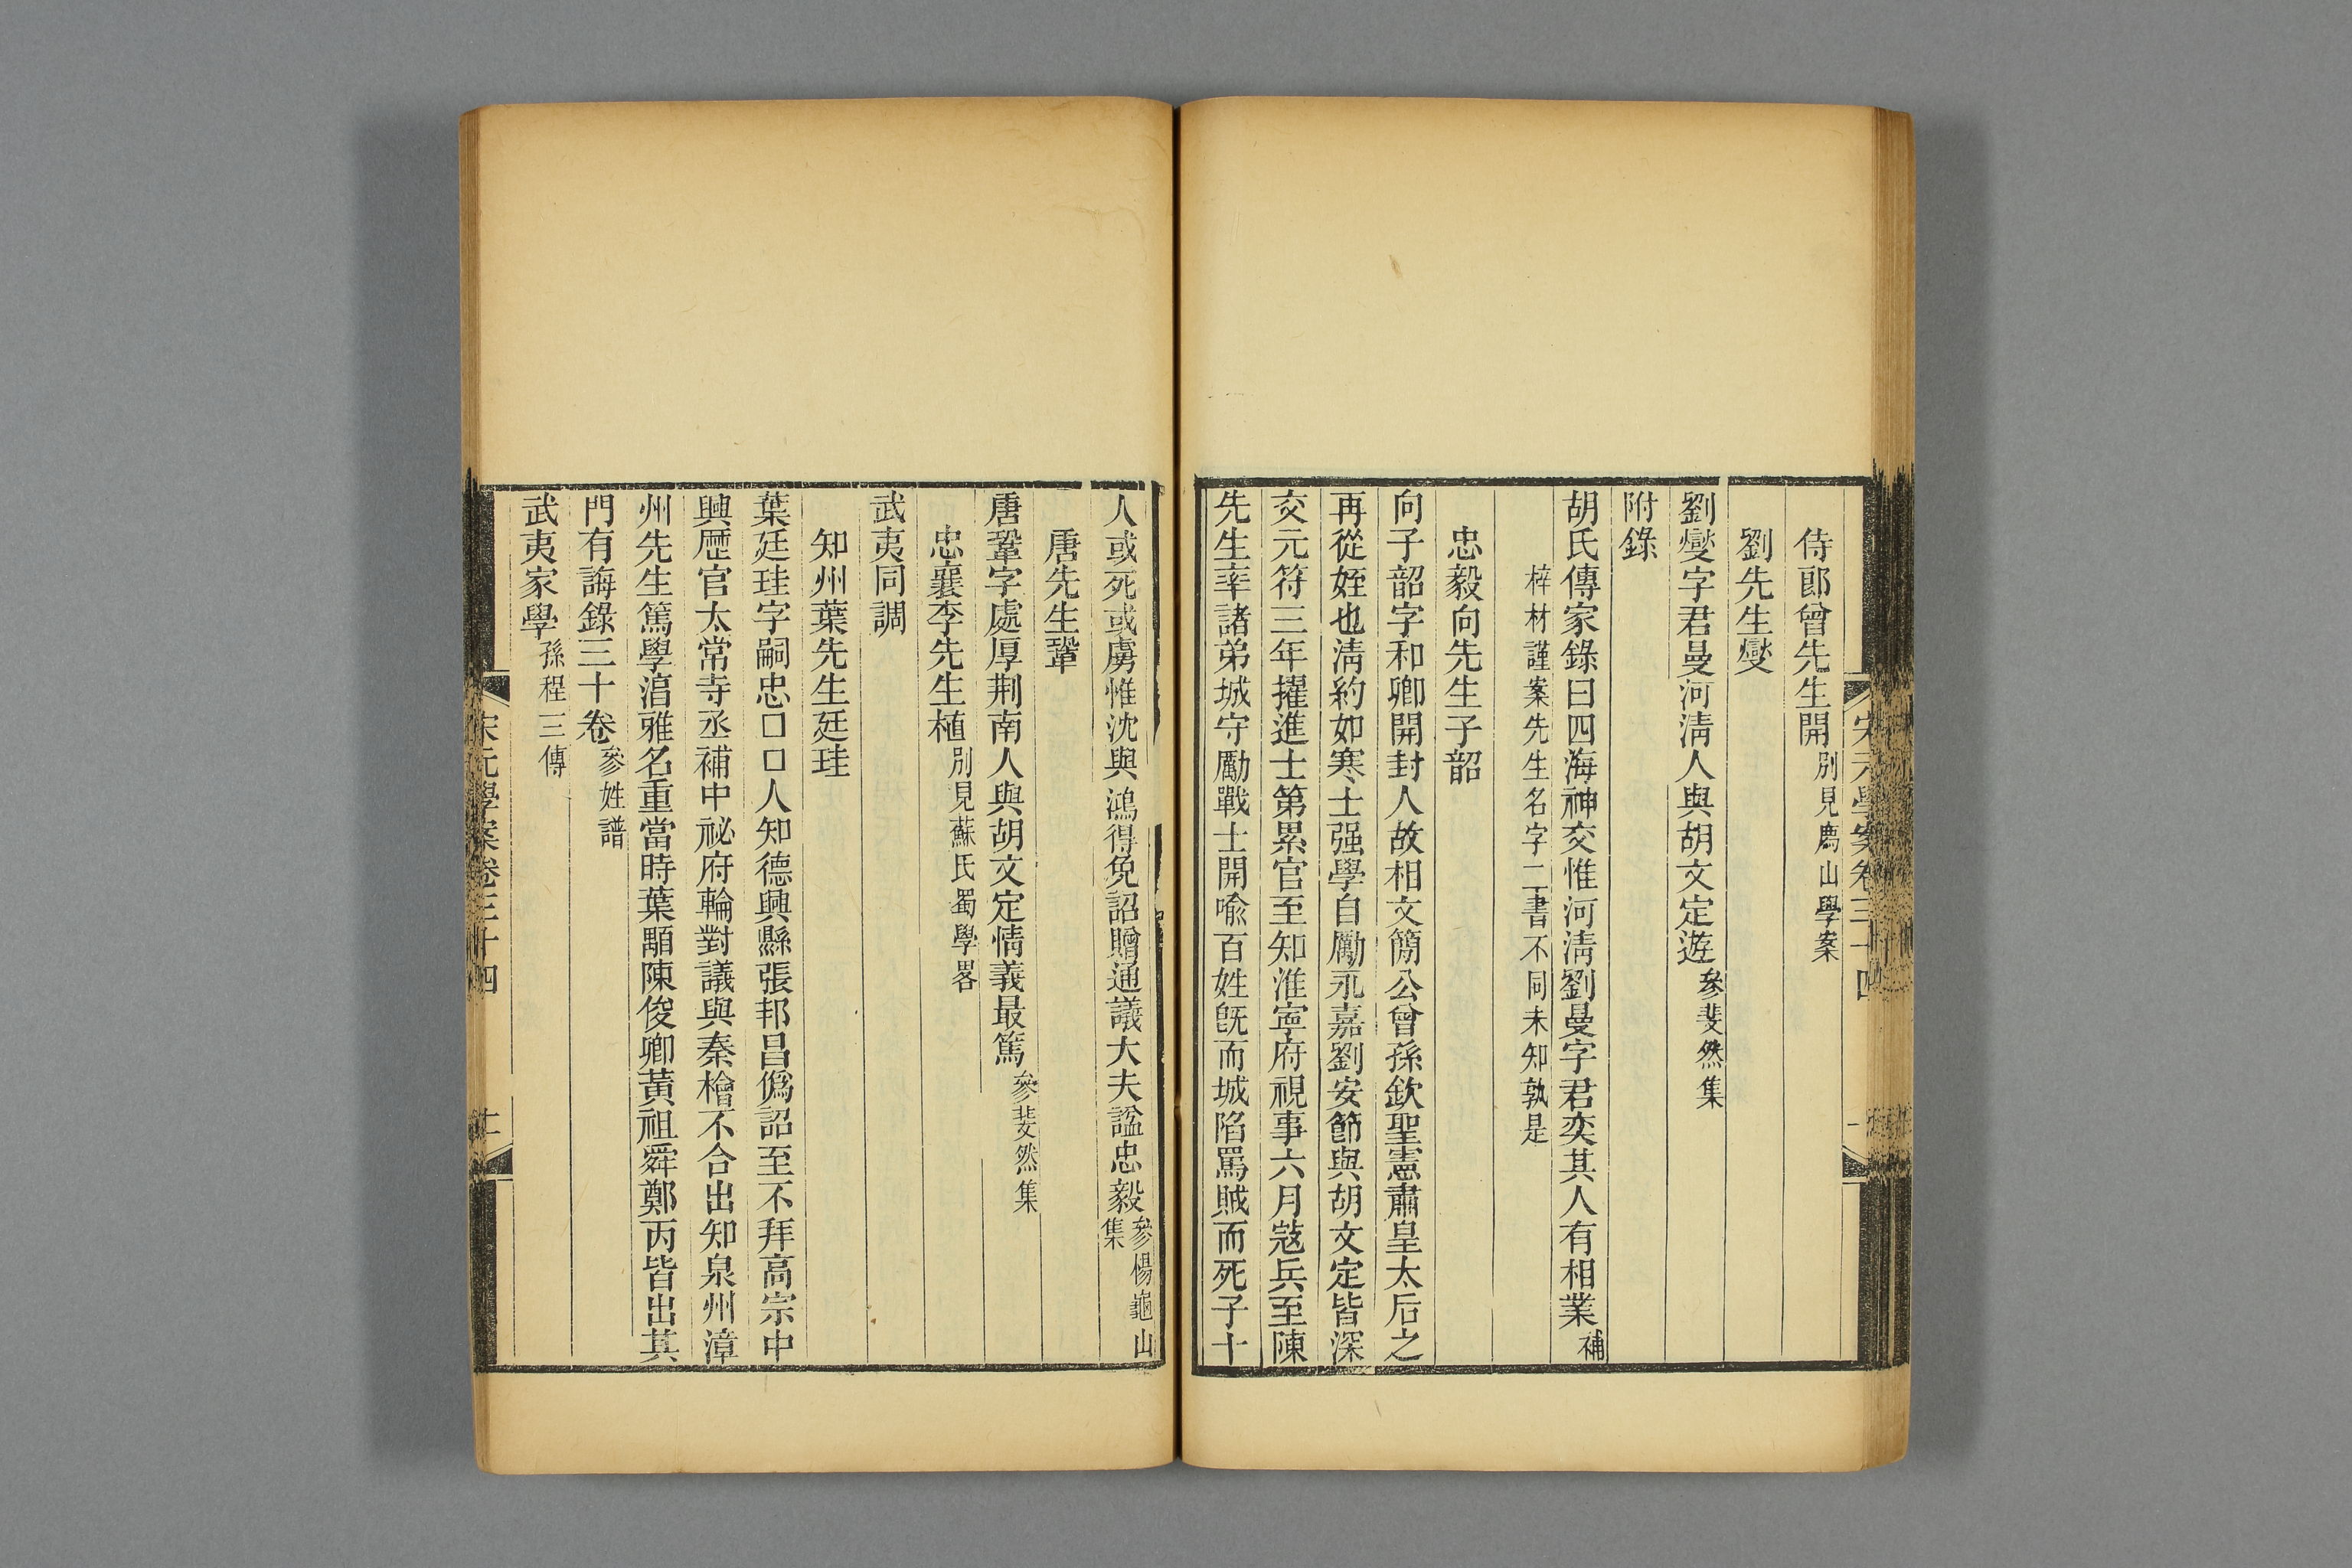 侍郎曾先生開別見廌山學案
劉先生燮
劉燮字君曼河淸人與胡文定遊參斐然集
附錄
胡氏傳家錄曰四海神交惟河淸劉曼字君奕其人有相業補
梓材謹案先生名字二書不同未知孰是
忠毅向先生子韶
向子韶字和卿開封人故相文簡公曾孫欽聖憲肅皇太后之
再從姪也淸約如寒士强學自勵永嘉劉安節與胡文定皆深
交元符三年擢進士第累官至知淮寧府視事六月寇兵至陳
先生率諸弟城守勵戰士開喩百姓旣而城陷罵賊而死子十
宋元學案卷三十四
人或死或虜惟沈與鴻得免詔贈通議大夫諡忠毅參楊龜山集
唐先生鞏
唐鞏字處厚荆南人與胡文定情義最篤參斐然集
忠襄李先生植別見蘇氏蜀學畧
武夷同調
知州葉先生廷珪
葉廷珪字嗣忠□□人知德興縣張邦昌僞詔至不拜高宗中
興歷官太常寺丞補中祕府輪對議與秦檜不合出知泉州漳
州先生篤學淯雅名重當時葉顒陳俊卿黃祖舜鄭丙皆出其
門有誨錄三十卷參姓譜
武夷家學孫程三傳
宋元學案卷三十四